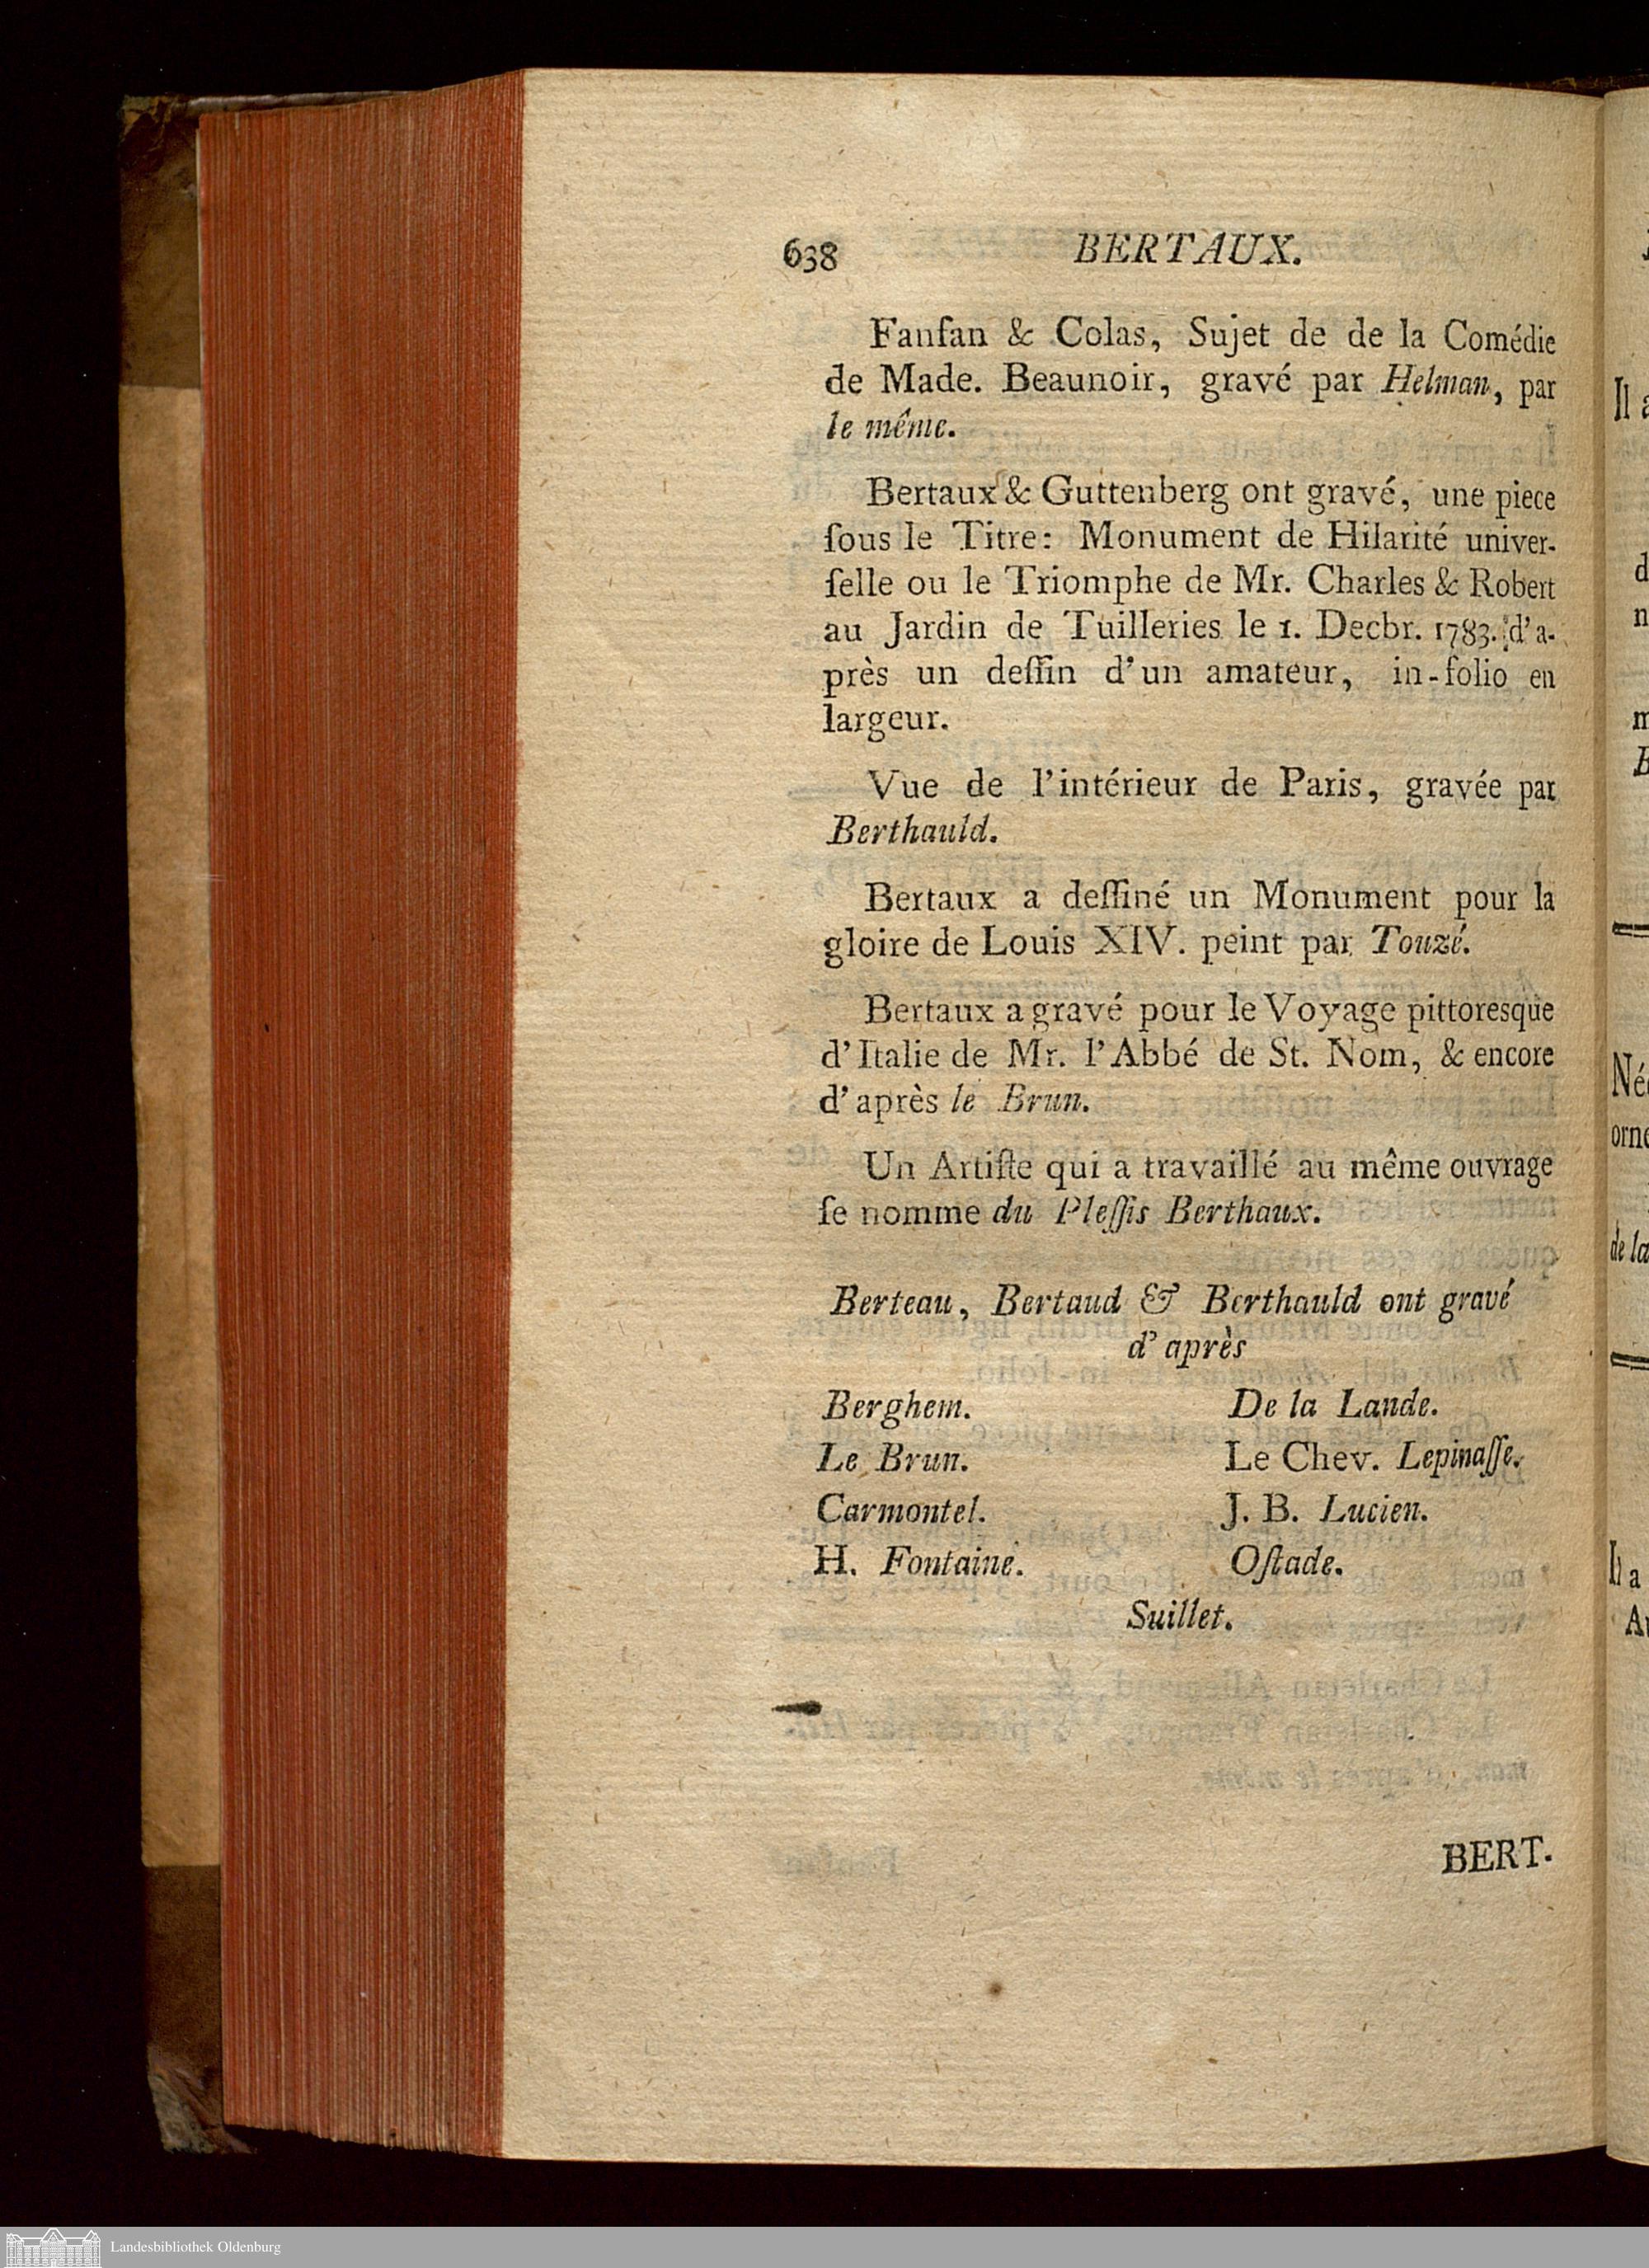 638 BERTAUX.
Fanfan & Colas, Sujet de de la Comédie
de Made. Beaunoir, gravé par Helman, par
le même.
Bertaux & Guttenberg ont gravé, une piece
ſous le Titre: Monument de Hilarité univer-
ſelle ou le Triomphe de Mr. Charles & Robert
au Jardin de Tuilleries le 1. Decbr. 1783. d'a-
près un deſſin d'un amateur, in-folio en
largeur.
Vue de l'intérieur de Paris, gravée par
Berthauld.
Bertaux a deſſiné un Monument pour la
gloire de Louis XIV. peint par Touzé.
Bertaux a gravé pour le Voyage pittoresque
d'Italie de Mr. l'Abbé de St. Nom, & encore
d'après le Brun.
Un Artiſte qui a travaillé au même ouvrage
ſe nomme du Pleſſis Berthaux.
Berteau, Bertaud & Berthauld ont gravé
d'après
Berghem. De la Lande.
Le Brun. Le Chev. Lepinaſſe.
Carmontel. J. B. Lucien.
H. Fontaine. Oſtade.
Suillet.
BERT.
Landesbibliothek Oldenburg